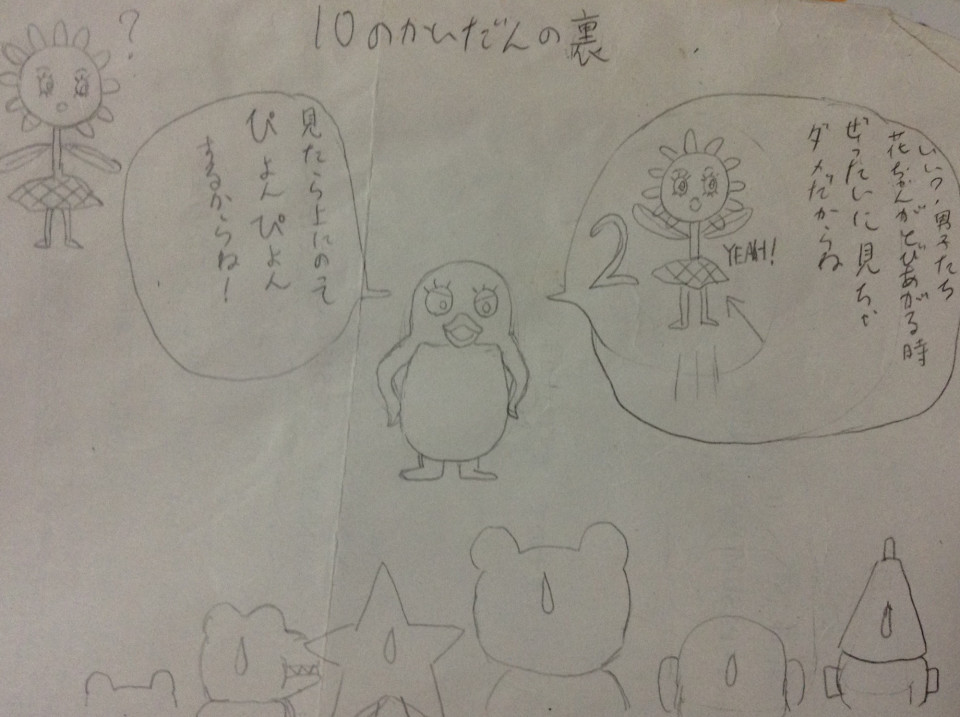 10のかいだんの裏
?
いい?男子たち
花ちゃんがとびあがる時
ぜったいに見ちゃ
ダメだからね
2
YEAH!
見たら上にのって
ぴょんぴょん
するからね!